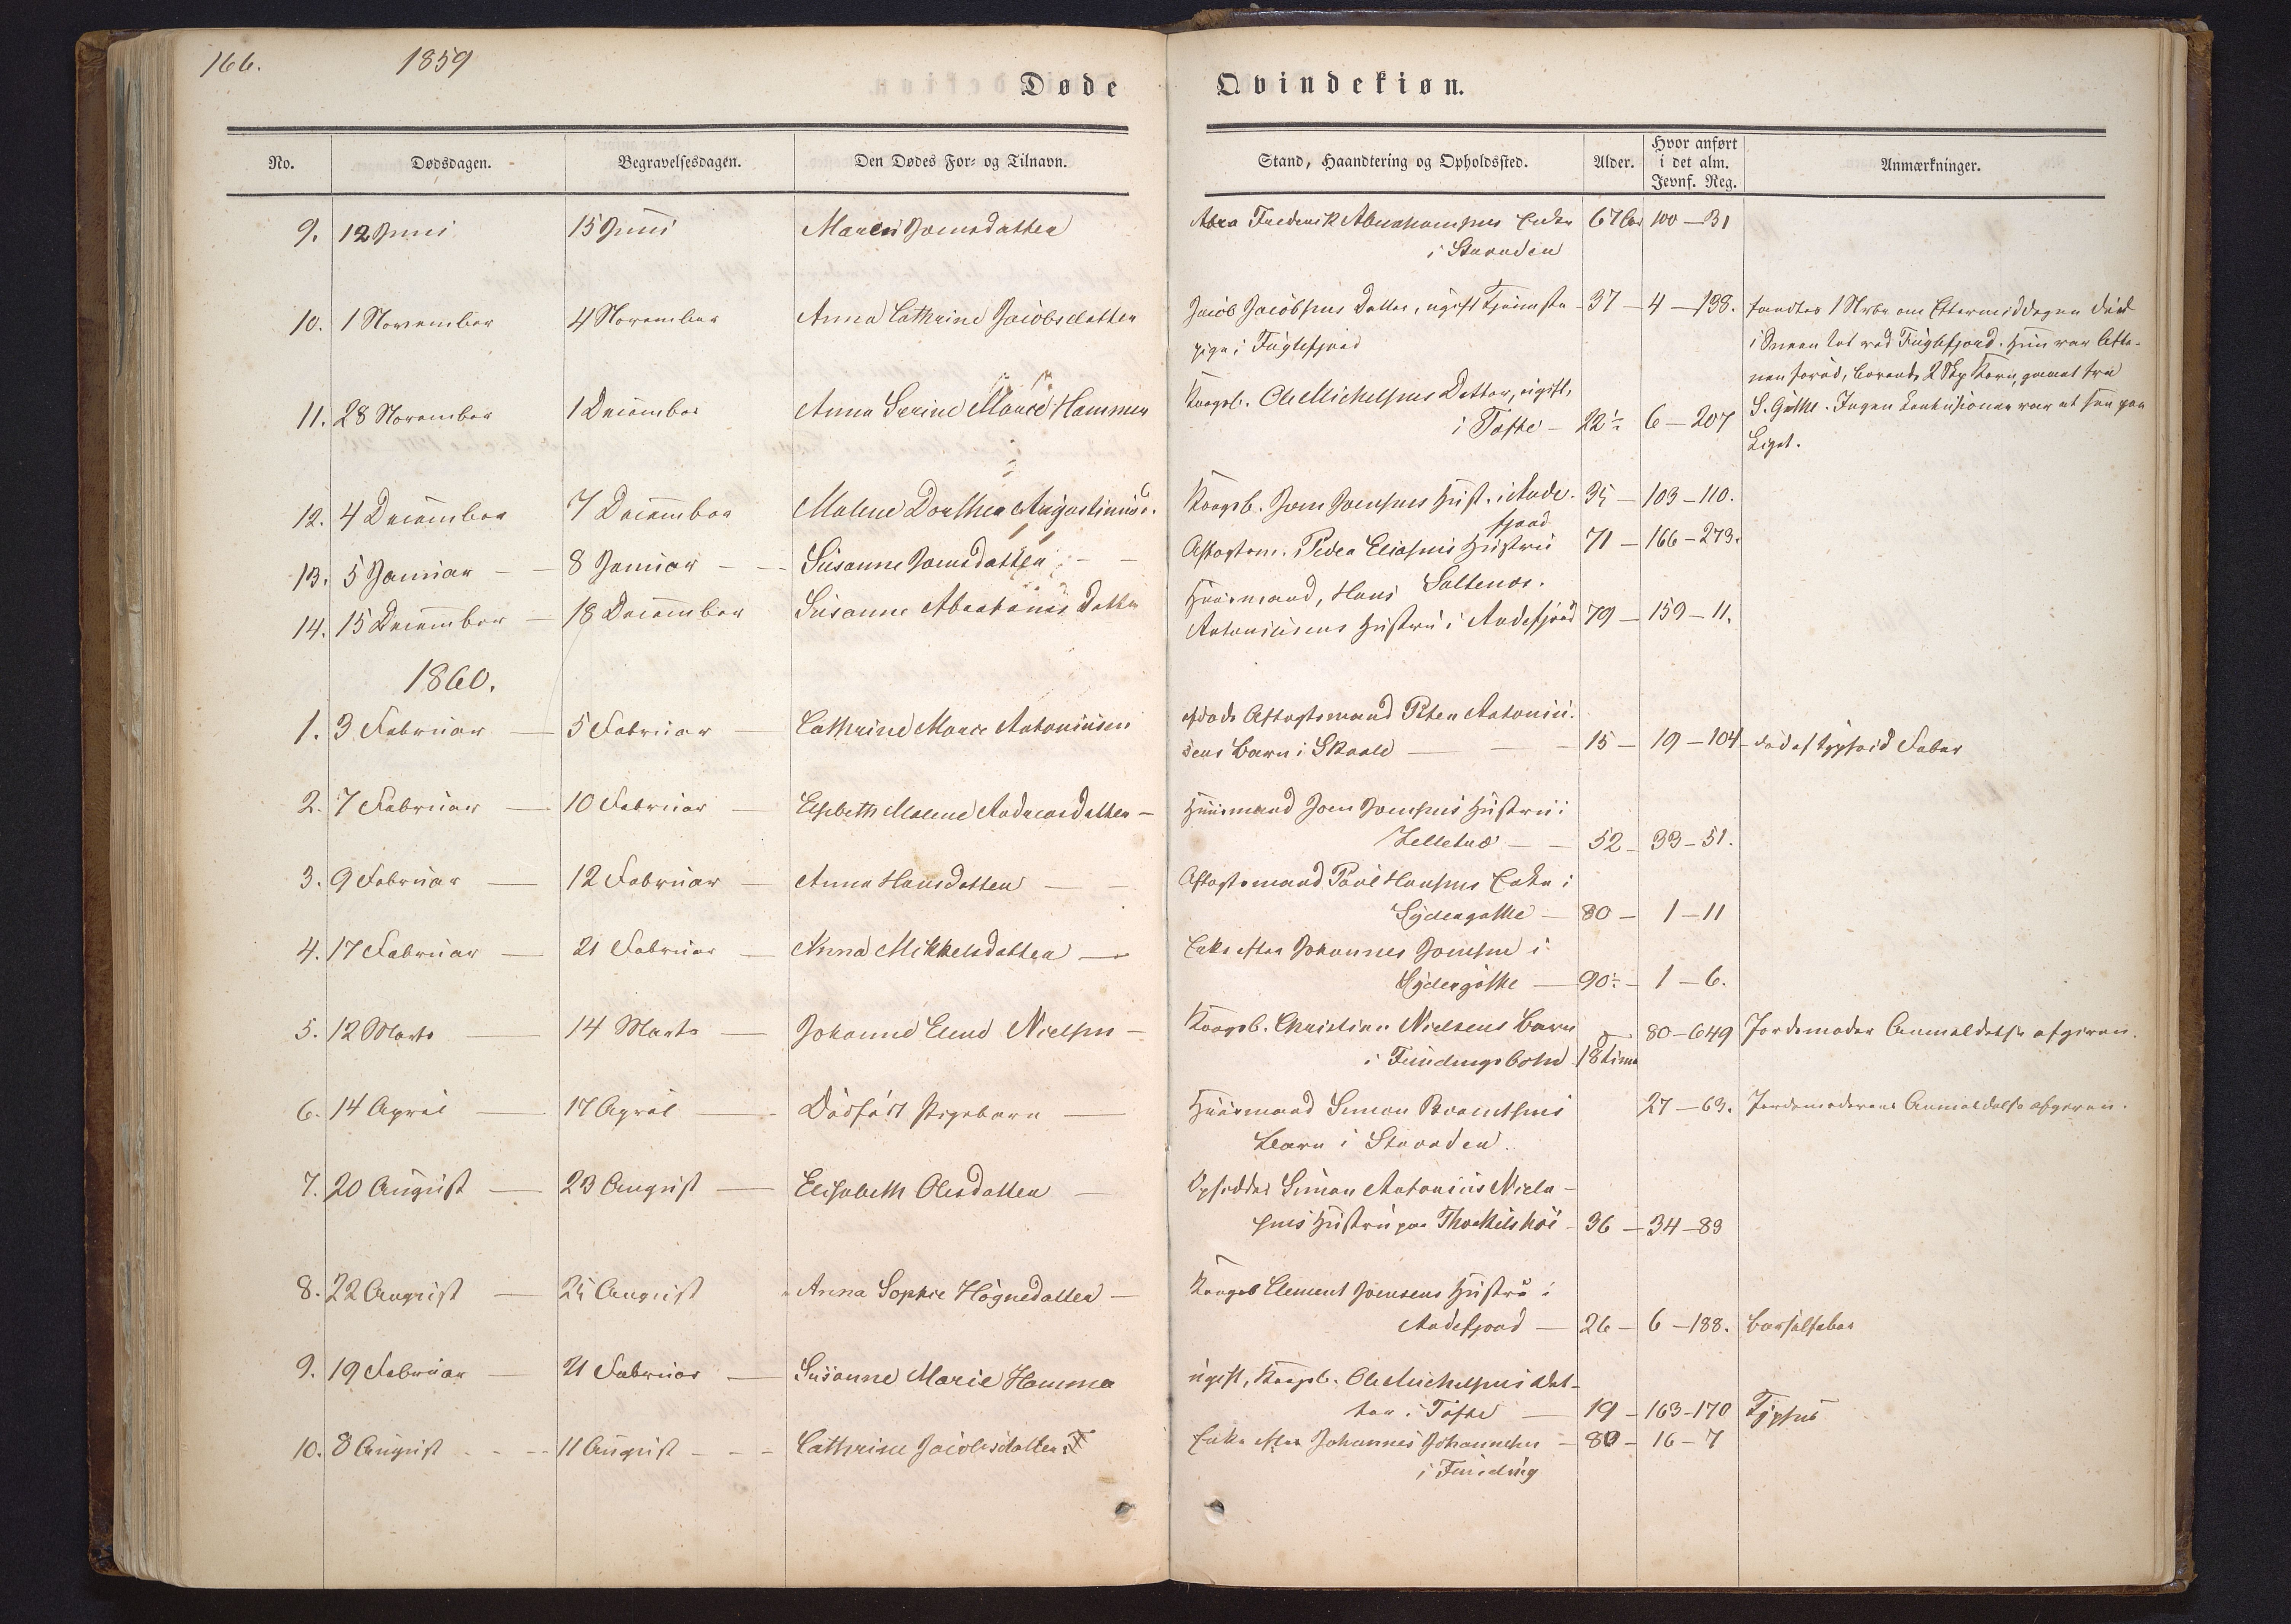 166.
1859
Døde
Qvindekiøn.
No.
Dødsdagen.
Begravelsesdagen.
Den Dødes For- og Tilnavn.
Stand, Haandtering og Opholdssted.
Alder.
Hvor anført
i det alm.
Jevnf. Reg.
Anmærkninger.
9. 12 Juni 15 Juni Maren Joensdatter Frederik Abrahamsens Enke 67 100-31
i Strenden
10. 1 November 4 November Anna Cathrine Jacobsdatter Jacob Jacobsens Datter, ugift Tjeneste 37 - 4 - 198. fandtes 1 Nvbr om Eftermiddagen død
pige i Fuglefjord
i Sneen tæt ved Fuglefjord. Hun var Afte-
nen forud, bærende 2 Skp Korn, gaaet fra
11. 28 November 1 December Anna Sunne Marie Hammer Kongsb. Ole Michelsens Datter, ugift,
i Tofte - 22½ 6 - 207
S. Gøthe. Ingen Contusioner var at see paa
Liget.
12. 4 December 7 December Malene Dorthea Augustinusd. Kongsb. Joen Joensens Hust. i Ande- 35 - 103 - 110.
fjord
13. 5 Januar - 8 Januar - Susanne Joensdatter - Aftagtsm. Peder Eliasens Hustru 71 - 166 - 273.
Saltenes.
14. 15 December - 18 December Susanne Abrahams Datter Huusmand, Hans
Antoniusens Hustru i Andefjord 79 - 159 - 11.
1860.
1. 3 Februar - 5 Februar - Cathrine Marie Antoniusen afdøde Aftagtsmand Peter Antoniu-
sens Barn i Skaale - 15 - 19 - 104 - død af typhoid Feber
2. 7 Februar - 10 Februar - Elsebeth Malene Andreasdatter - Huusmand Joen Joensens Hustru i
Zelletræ - 52 - 33 - 51.
3. 9 Februar - 12 Februar - Anna Hansdatter - Aftagtsmand Poul Hansens Enke i
Sydergøthe - 80 - 1 - 11
4. 17 Februar - 21 Februar - Anna Mikkelsdatter - Enke efter Johannes Joensen i
Sydergøthe - 90½ - 1 - 6.
5. 12 Marts - 14 Marts - Johanne Elene Nielsen - Kongsb. Christian Nielsens Barn
i Fundingsbotn 18 Timer 80 - 649 Jordemoder Anmeldelse afgiven.
6. 14 April - 17 April - Dødfødt Pigebarn - Huusmand Simon Berentsens 27 - 63. Jordemoderens Anmeldelse afgiven.
Barn i Strenden.
7. 20 August - 23 August - Elisabeth Olesdatter - Opsidder Simon Antonius Niel-
sens Hustru paa Thorkilshøi - 36 - 34 - 83
8. 22 August - 25 August - Anna Sophie Høgnedatter - Kongsb Clement Joensens Hustru i
Andefjord - 26 - 6 - 188. Barselfeber
9. 19 Februar - 21 Februar - Susanne Marie Hammer ugift, Kongsb. Ole Michelsens Dat-
ter i Tofte - 19 - 163 - 170 Typhus
10. 8 August - - 11 August - - Cathrine Jacobsdatter Enke efter Johannes Johannesen - 80 - 16 - 7
i Funding